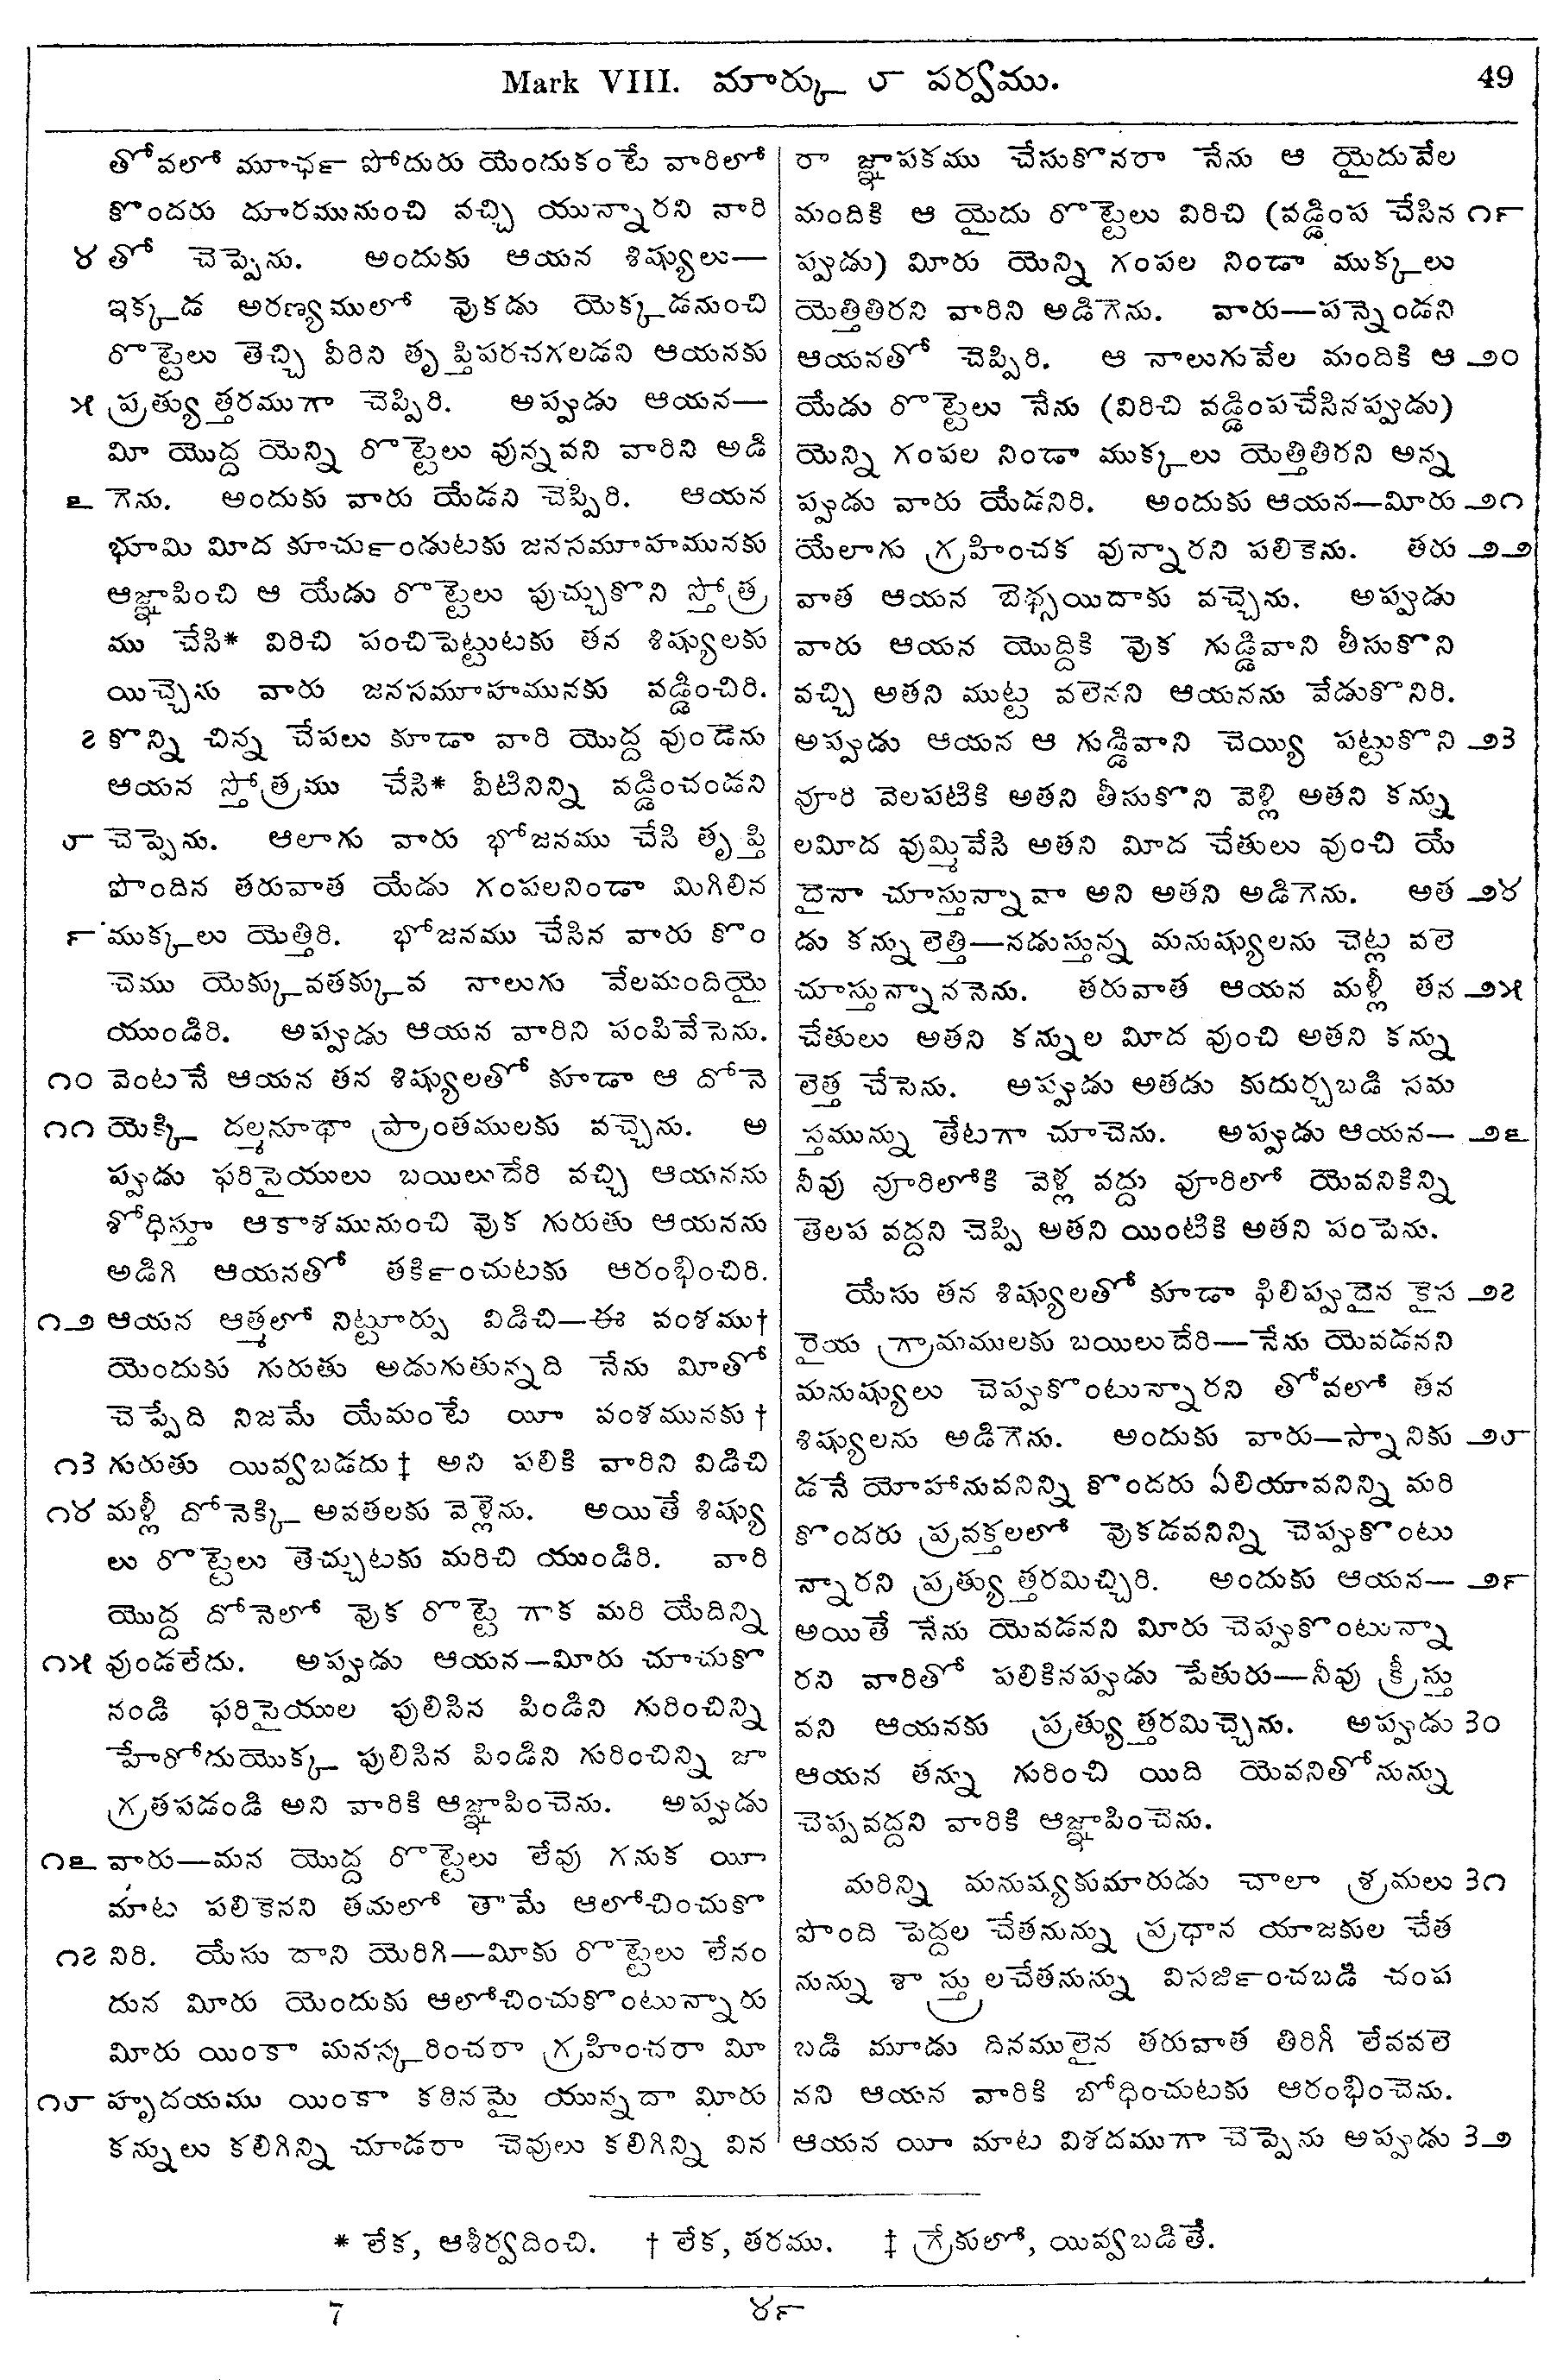 Mark VIII. మార్కు ౮ పర్వము. 49
తోవలో మూఛ౯ పోదురు యెందుకంటే వారిలో
కొందరు దూరమునుంచి వచ్చి యున్నారని వారి
౪ తో చెప్పెను. అందుకు ఆయన శిష్యులు—
ఇక్కడ అరణ్యములో వొకడు యెక్కడనుంచి
రొట్టెలు తెచ్చి వీరిని తృప్తిపరచగలడని ఆయనకు
౫ ప్రత్యుత్తరముగా చెప్పిరి. అప్పుడు ఆయన—
మీ యొద్ద యెన్ని రొట్టెలు వున్నవని వారిని అడి
౬ గెను. అందుకు వారు యేడని చెప్పిరి. ఆయన
భూమి మీద కూచు౯ండుటకు జనసమూహమునకు
ఆజ్ఞాపించి ఆ యేడు రొట్టెలు పుచ్చుకొని స్తోత్ర
ము చేసి* విరిచి పంచిపెట్టుటకు తన శిష్యులకు
యిచ్చెను వారు జనసమూహమునకు వడ్డించిరి.
౭ కొన్ని చిన్న చేపలు కూడా వారి యొద్ద వుండెను
ఆయన స్తోత్రము చేసి* వీటినిన్ని వడ్డించండని
౮ చెప్పెను. ఆలాగు వారు భోజనము చేసి తృప్తి
పొందిన తరువాత యేడు గంపలనిండా మిగిలిన
౯ ముక్కలు యెత్తిరి. భోజనము చేసిన వారు కొం
చెము యెక్కువతక్కువ నాలుగు వేలమందియై
యుండిరి. అప్పుడు ఆయన వారిని పంపివేసెను.
౧౦ వెంటనే ఆయన తన శిష్యులతో కూడా ఆ దోనె
౧౧ యెక్కి దల్మనూథా ప్రాంతములకు వచ్చెను. అ
ప్పుడు ఫరిసైయులు బయిలుదేరి వచ్చి ఆయనను
శోధిస్తూ ఆకాశమునుంచి వొక గురుతు ఆయనను
అడిగి ఆయనతో తకి౯ంచుటకు ఆరంభించిరి.
౧౨ ఆయన ఆత్మలో నిట్టూర్పు విడిచి—ఈ వంశము†
యెందుకు గురుతు అడుగుతున్నది నేను మీతో
చెప్పేది నిజమే యేమంటే యీ వంశమునకు†
౧౩ గురుతు యివ్వబడదు‡ అని పలికి వారిని విడిచి
౧౪ మళ్లీ దోనెక్కి అవతలకు వెళ్లెను. అయితే శిష్యు
లు రొట్టెలు తెచ్చుటకు మరిచి యుండిరి. వారి
యొద్ద దోనెలో వొక రొట్టె గాక మరి యేదిన్ని
౧౫ వుండలేదు. అప్పుడు ఆయన—మీరు చూచుకొ
నండి ఫరిసైయుల పులిసిన పిండిని గురించిన్ని
హేరోదుయొక్క పులిసిన పిండిని గురించిన్ని జా
గ్రతపడండి అని వారికి ఆజ్ఞాపించెను. అప్పుడు
౧౬ వారు—మన యొద్ద రొట్టెలు లేవు గనుక యీ
మాట పలికెనని తమలో తామే ఆలోచించుకొ
౧౭ నిరి. యేసు దాని యెరిగి—మీకు రొట్టెలు లేనం
దున మీరు యెందుకు ఆలోచించుకొంటున్నారు
మీరు యింకా మనస్కరించరా గ్రహించరా మీ
౧౮ హృదయము యింకా కఠినమై యున్నదా మీరు
కన్నులు కలిగిన్ని చూడరా చెవులు కలిగిన్ని విన
రా జ్ఞాపకము చేసుకొనరా నేను ఆ యైదువేల
మందికి ఆ యైదు రొట్టెలు విరిచి (వడ్డింప చేసిన ౧౯
ప్పుడు) మీరు యెన్ని గంపల నిండా ముక్కలు
యెత్తితిరని వారిని అడిగెను. వారు—పన్నెండని
ఆయనతో చెప్పిరి. ఆ నాలుగువేల మందికి ఆ ౨౦
యేడు రొట్టెలు నేను (విరిచి వడ్డింపచేసినప్పుడు)
యెన్ని గంపల నిండా ముక్కలు యెత్తితిరని అన్న
ప్పుడు వారు యేడనిరి. అందుకు ఆయన—మీరు ౨౧
యేలాగు గ్రహించక వున్నారని పలికెను. తరు ౨౨
వాత ఆయన బెథ్సయిదాకు వచ్చెను. అప్పుడు
వారు ఆయన యొద్దికి వొక గుడ్డివాని తీసుకొని
వచ్చి అతని ముట్ట వలెనని ఆయనను వేడుకొనిరి.
అప్పుడు ఆయన ఆ గుడ్డివాని చెయ్యి పట్టుకొని ౨౩
వూరి వెలపటికి అతని తీసుకొని వెళ్లి అతని కన్ను
లమీద వుమ్మివేసి అతని మీద చేతులు వుంచి యే
దైనా చూస్తున్నావా అని అతని అడిగెను. అత ౨౪
డు కన్నులెత్తి—నడుస్తున్న మనుష్యులను చెట్ల వలె
చూస్తున్నాననెను. తరువాత ఆయన మళ్లీ తన ౨౫
చేతులు అతని కన్నుల మీద వుంచి అతని కన్ను
లెత్త చేసెను. అప్పుడు అతడు కుదుర్చబడి సమ
స్తమున్ను తేటగా చూచెను. అప్పుడు ఆయన— ౨౬
నీవు వూరిలోకి వెళ్ల వద్దు వూరిలో యెవనికిన్ని
తెలప వద్దని చెప్పి అతని యింటికి అతని పంపెను.
యేసు తన శిష్యులతో కూడా ఫిలిప్పుదైన కైస ౨౭
రైయ గ్రామములకు బయిలుదేరి—నేను యెవడనని
మనుష్యులు చెప్పుకొంటున్నారని తోవలో తన
శిష్యులను అడిగెను. అందుకు వారు—స్నానికు ౨౮
డనే యోహానువనిన్ని కొందరు ఏలియావనిన్ని మరి
కొందరు ప్రవక్తలలో వొకడవనిన్ని చెప్పుకొంటు
న్నారని ప్రత్యుత్తరమిచ్చిరి. అందుకు ఆయన— ౨౯
అయితే నేను యెవడనని మీరు చెప్పుకొంటున్నా
రని వారితో పలికినప్పుడు పేతురు—నీవు క్రీస్తు
వని ఆయనకు ప్రత్యుత్తరమిచ్చెను. అప్పుడు ౩౦
ఆయన తన్ను గురించి యిది యెవనితోనున్ను
చెప్పవద్దని వారికి ఆజ్ఞాపించెను.
మరిన్ని మనుష్యకుమారుడు చాలా శ్రమలు ౩౧
పొంది పెద్దల చేతనున్ను ప్రధాన యాజకుల చేత
నున్ను శాస్త్రులచేతనున్ను విసజి౯ంచబడి చంప
బడి మూడు దినములైన తరువాత తిరిగీ లేవవలె
నని ఆయన వారికి బోధించుటకు ఆరంభించెను.
ఆయన యీ మాట విశదముగా చెప్పెను అప్పుడు ౩౨
* లేక, ఆశీర్వదించి. † లేక, తరము. ‡ గ్రేకులో, యివ్వబడితే.
7 ౪౯